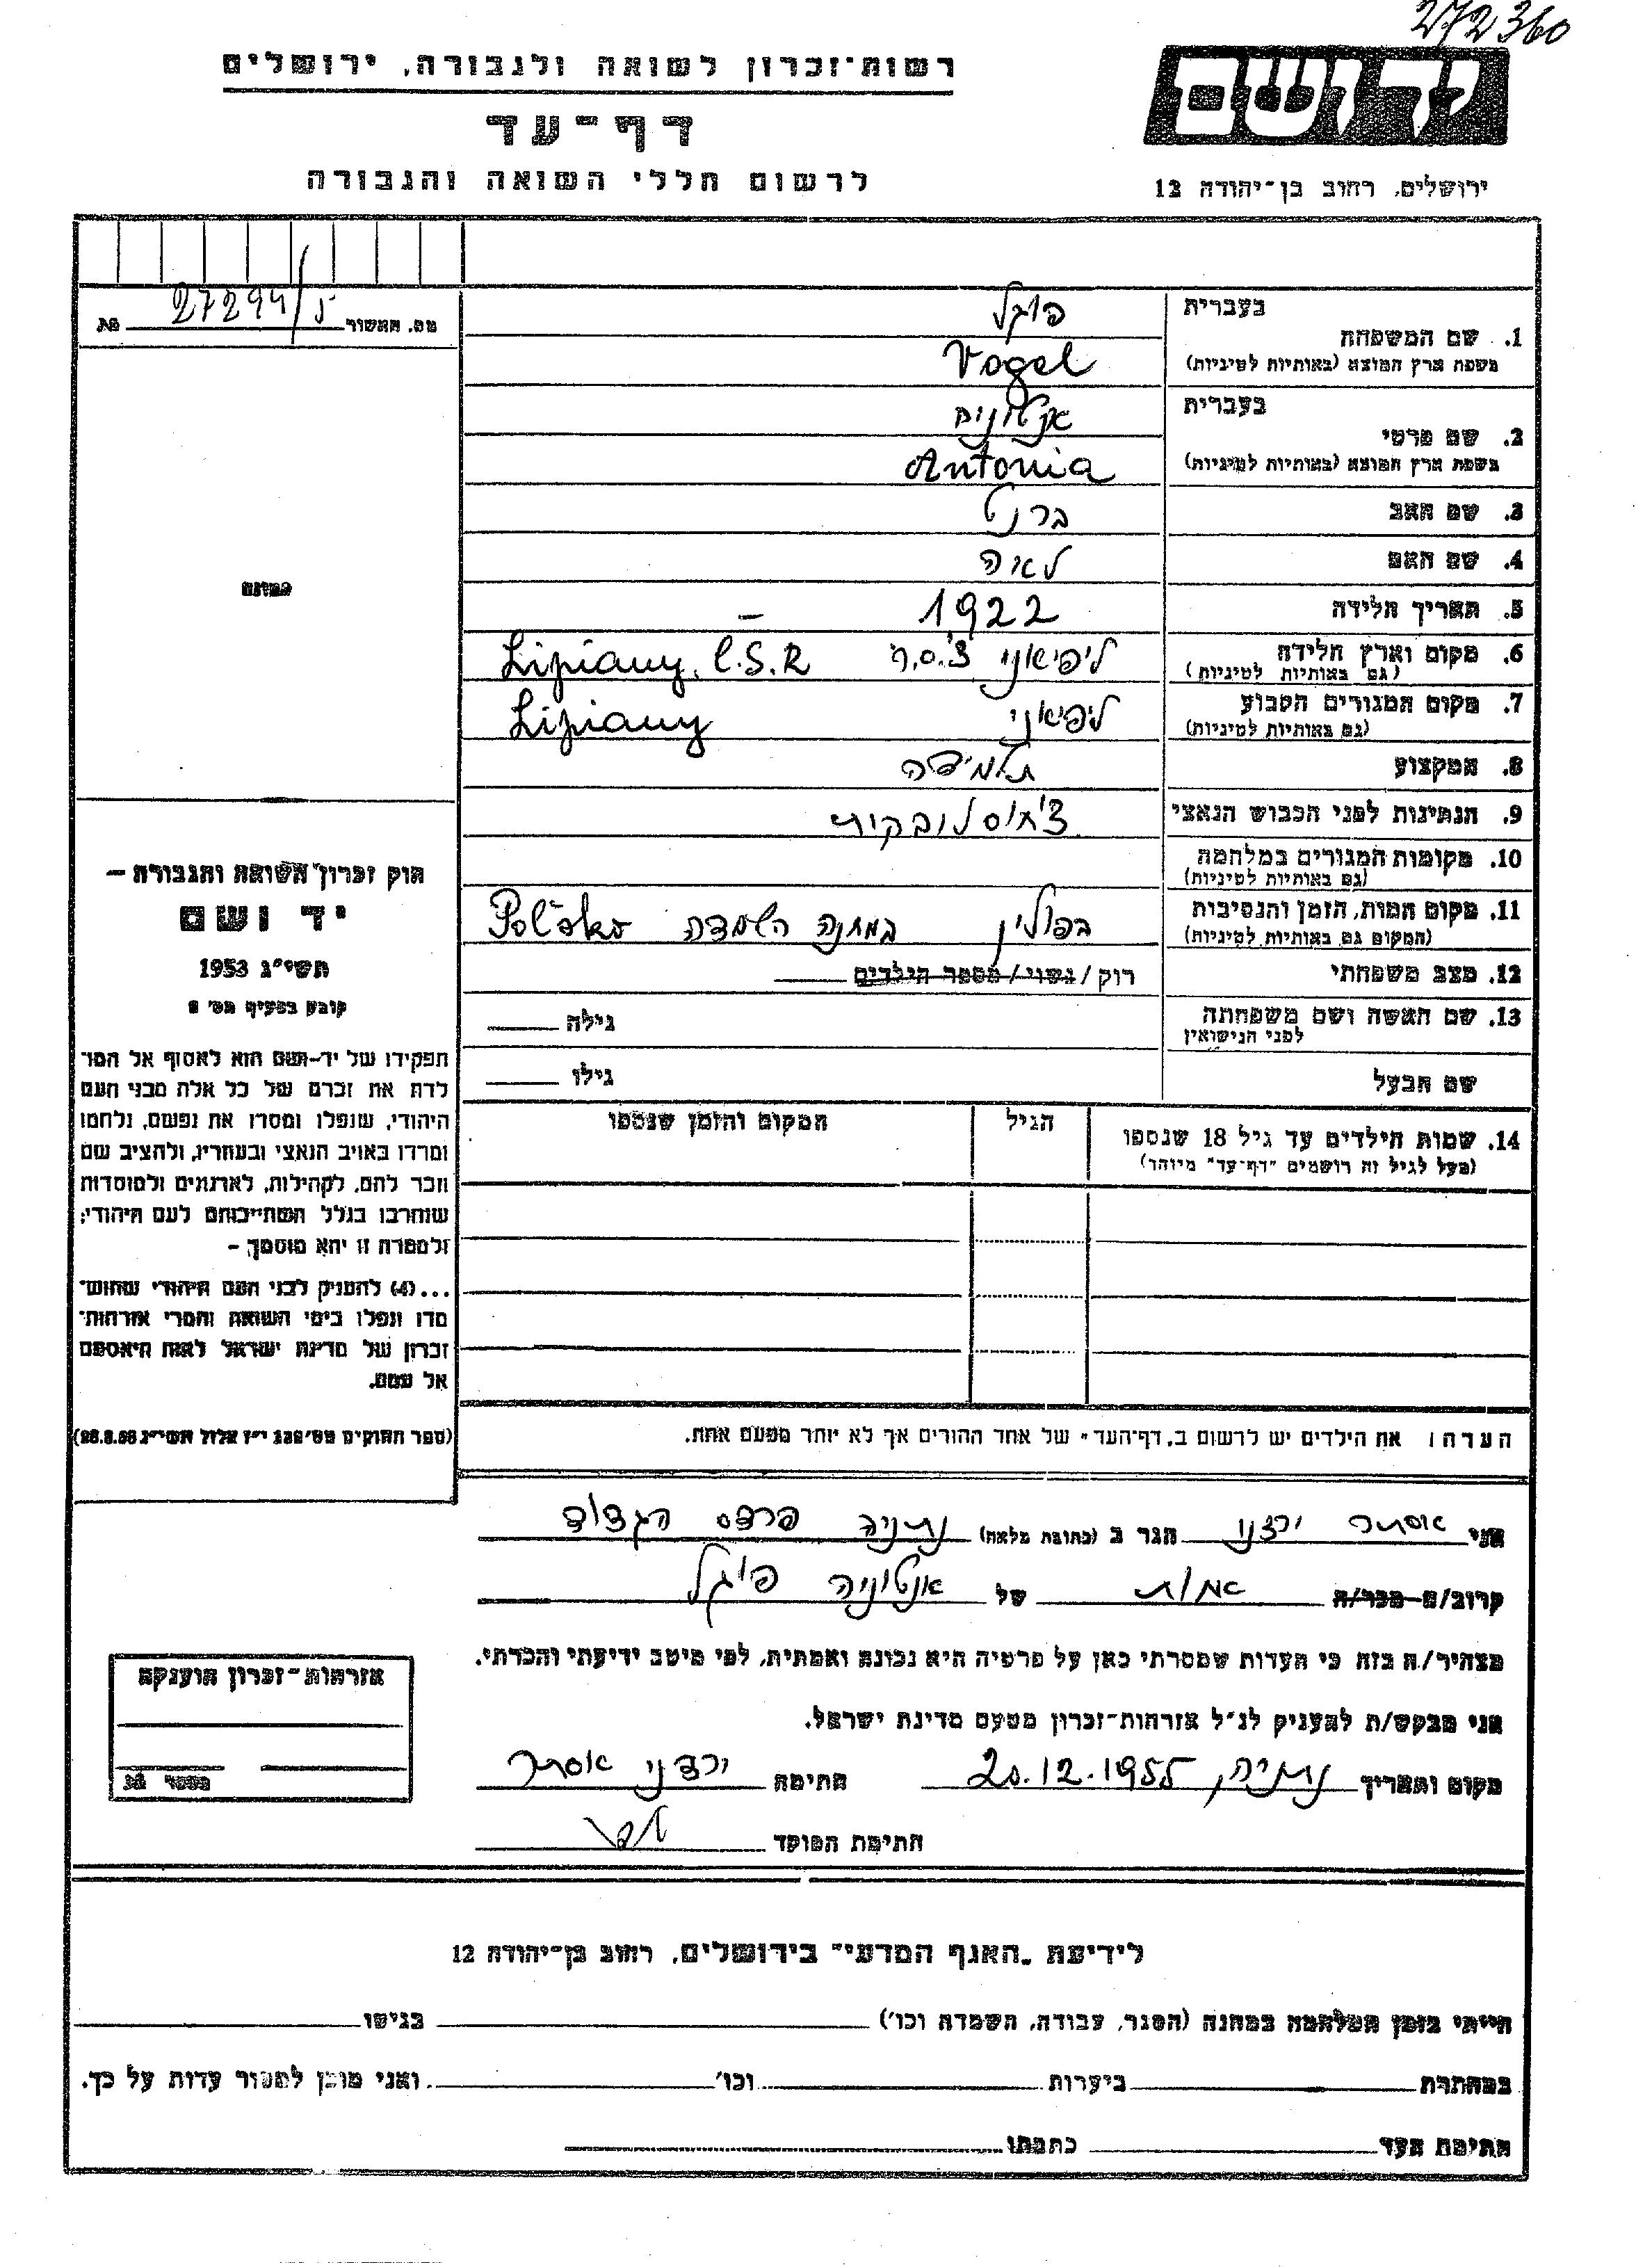 272360
רשות־זכרון לשואה ולגבורה, ירושלים
יד ושם
דף־עד
לרשום חללי השואה והגבורה
ירושלים, רחוב בן־יהודה 12
מס. האשור 27294/5 No.
בעברית פוגל
1. שם המשפחה
בשפת ארץ המוצא (באותיות לטיניות) Vogel
בעברית
2. שם פרטי
בשפת ארץ המוצא (באותיות לטיניות) Antonia
3. שם האב ברנט
4. שם האם לאה
5. תאריך הלידה 1922 –
6. מקום וארץ הלידה ליפיאני צ'.ס.ר Lipiany, C.S.R
(גם באותיות לטיניות)
7. מקום המגורים הקבוע ליפיאני Lipiany
(גם באותיות לטיניות)
8. המקצוע תלמידה
9. הנתינות לפני הכבוש הנאצי
10. מקומות המגורים במלחמה
(גם באותיות לטיניות)
11. מקום המות, הזמן והנסיבות בפולין במחנה השמדה Polsko
(המקום גם באותיות לטיניות)
12. מצב משפחתי רוק / נשוי / מספר הילדים
13. שם האשה ושם משפחתה גילה
לפני הנישואין
שם הבעל גילו
14. שמות הילדים עד גיל 18 שנספו הגיל המקום והזמן שנספו
(מעל לגיל זה רושמים "דף־עד" מיוחד)
הערה: את הילדים יש לרשום ב„דף־העד" של אחד ההורים אך לא יותר מפעם אחת.
התמונה
חוק זכרון השואה והגבורה –
יד ושם
תשי"ג 1953
קובע בסעיף מס'
תפקידו של יד-ושם הוא לאסוף אל המו
לדת את זכרם של כל אלה מבני העם
היהודי, שנפלו ומסרו את נפשם, נלחמו
ומרדו באויב הנאצי ובעוזריו, ולהציב שם
וזכר להם, לקהילות, לארגונים ולמוסדות
שנחרבו בגלל השתייכותם לעם היהודי;
ולמטרה זו יהא מוסמך –
...(4) להעניק לבני העם היהודי שהוש־
מדו ונפלו בימי השואה והמרי אזרחות־
זכרון של מדינת ישראל לאות היאספם
אל עמם.
(ספר החוקים מס' 132 י"ז אלול תשי"ג 28.8.53)
אני אסתר ירדני הגר ב (כתובת מלאה) נתניה פרדס הגדוד
קרוב/ם מכר/ה של אנטוניה פוגל
מצהיר/ה בזה כי העדות שמסרתי כאן על פרטיה היא נכונה ואמתית, לפי מיטב ידיעתי והכרתי.
אני מבקש/ת להעניק לנ"ל אזרחות־זכרון מטעם מדינת ישראל.
מקום ותאריך נתניה, 20.12.1955 חתימה ירדני אסתר
חתימת הפוקד
אזרחות־זכרון הוענקה
לידיעת „האגף המדעי" בירושלים, רחוב בן־יהודה 12
הייתי בזמן המלחמה במחנה (הסגר, עבודה, השמדה וכו') בגיטו
במחתרת ביערות וכו' ואני מוכן למסור עדות על כך.
חתימת העד כתבתו